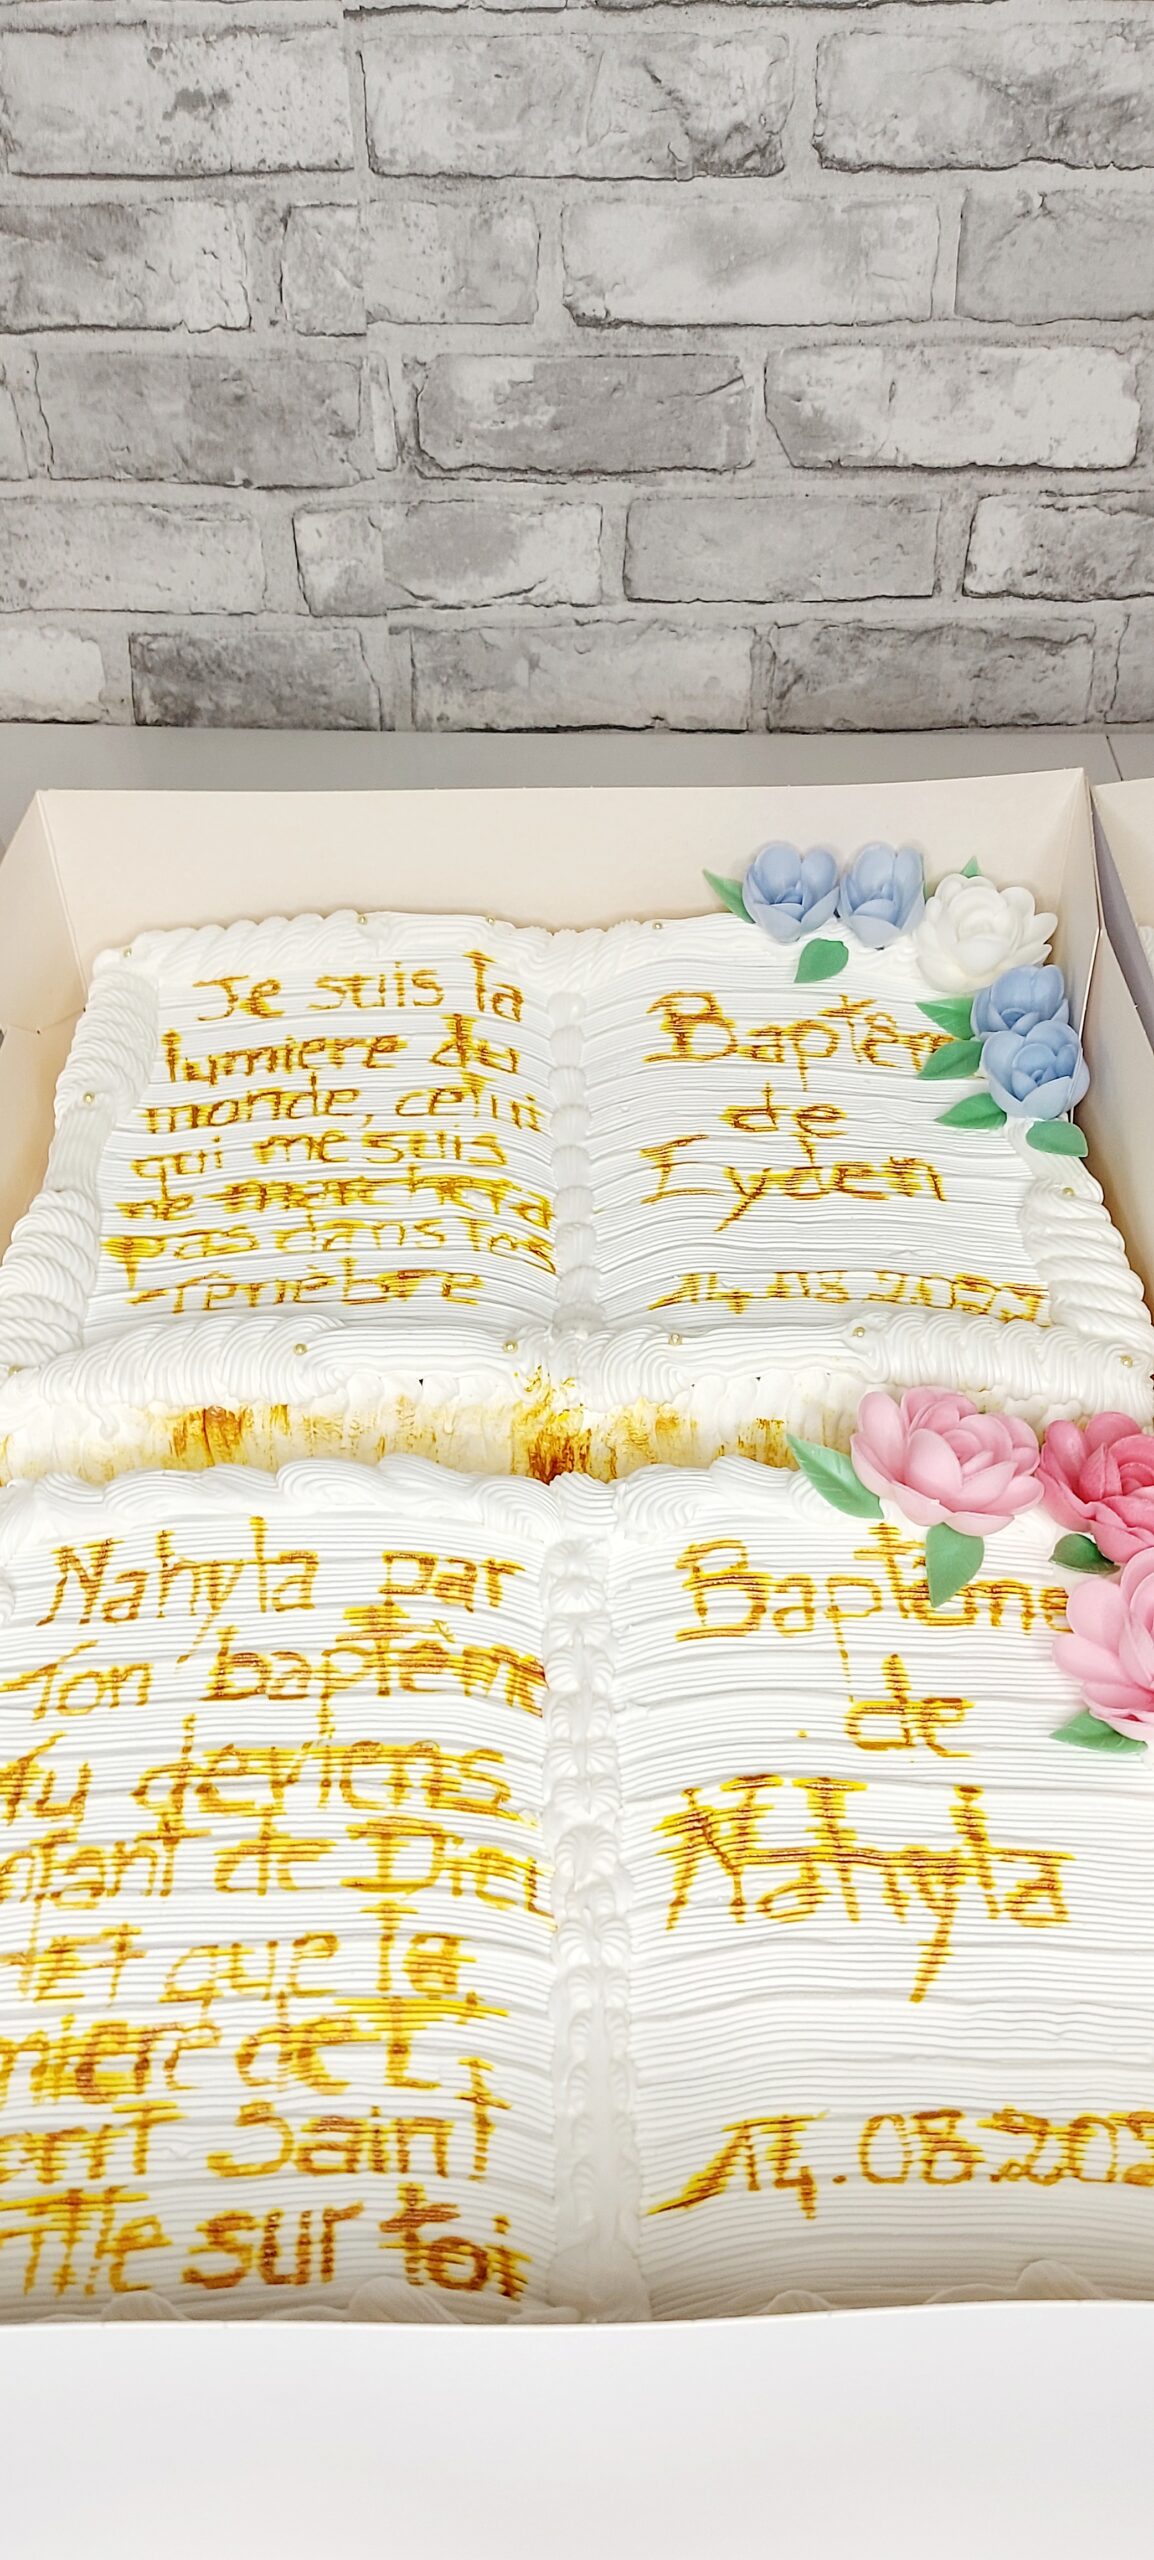 Je suis la
lumiere du
monde, celui
qui me suis
ne marchera
pas dans les
ténèbre
Baptêm
de
Lyden
14.08.2022
Nahyla par
Ton baptêm
tu deviens
nfant de Dieu
et que la
mière de L'
Saint
lle sur toi
Baptême
de
Nahyla
14.08.202